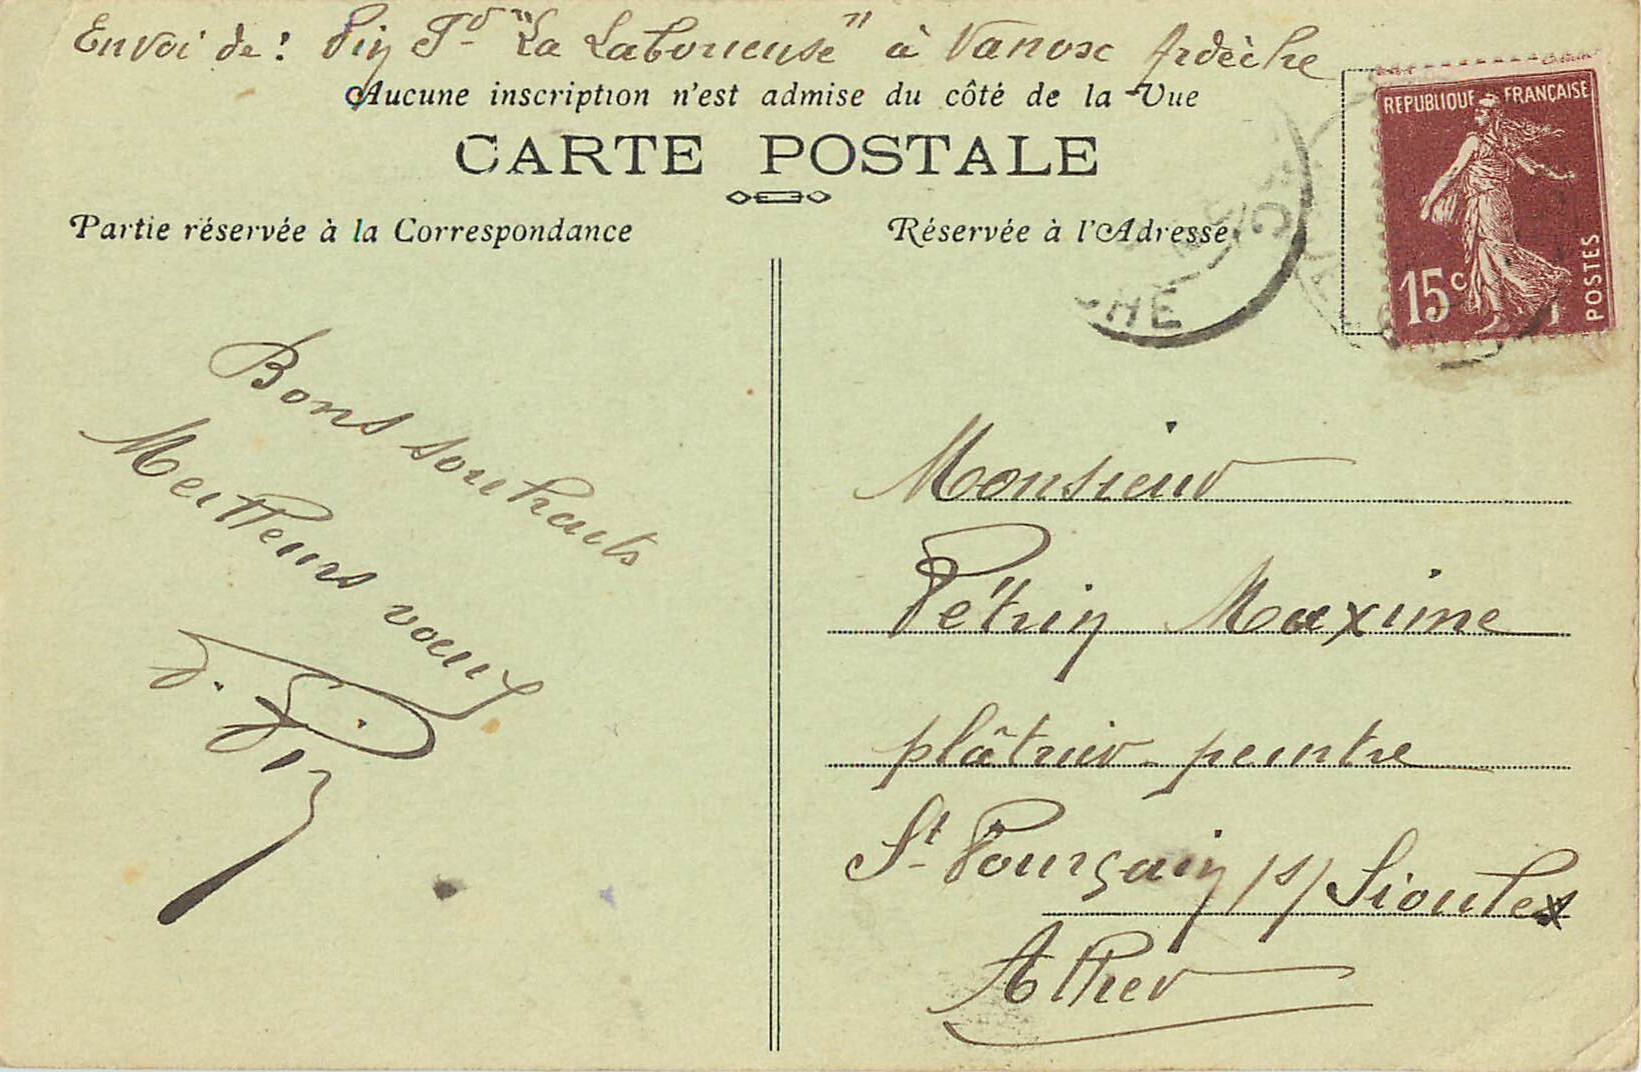 Envoi de : Pin Fd "La Laborieuse" à Vanosc Ardèche
Aucune inscription n'est admise du côté de la Vue
CARTE POSTALE
Partie réservée à la Correspondance
Réservée à l'Adresse
REPUBLIQUE FRANÇAISE
15c
POSTES
CHE
Bons souhaits
Meilleurs voeux
F. Pin
Monsieur
Pétrin Maxime
plâtrier-peintre
St Pourçain /s/ Sioule
Allier